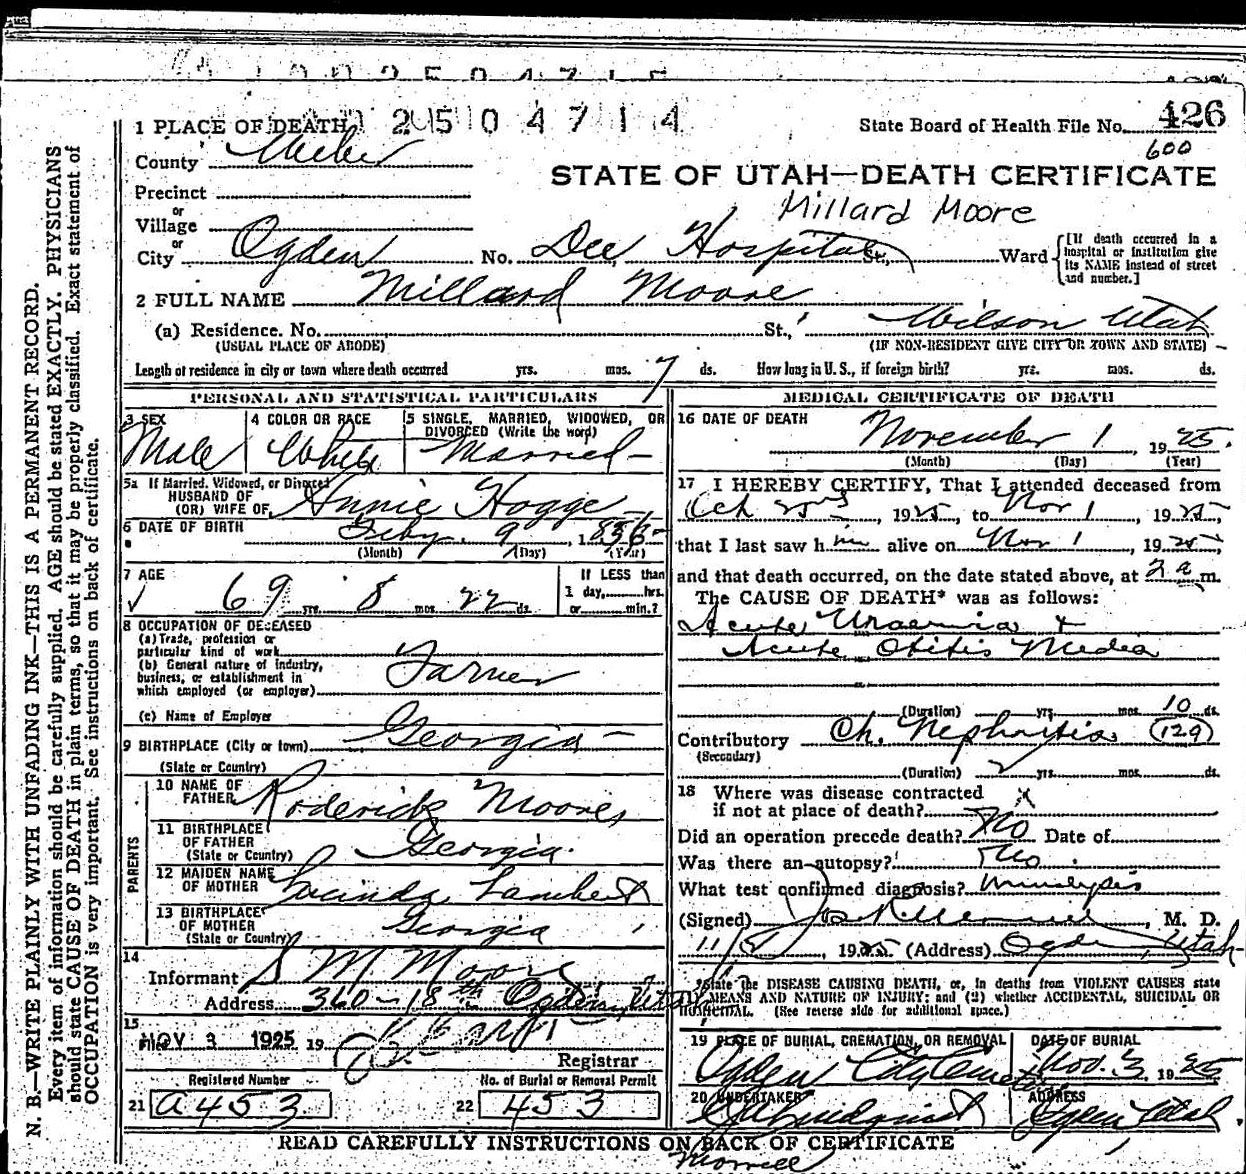 2 5 0 4 7 1 4
1 PLACE OF DEATH
State Board of Health File No. 426
600
County Weber
STATE OF UTAH—DEATH CERTIFICATE
Precinct
Millard Moore
or
Village
or
City Ogden No. Dee Hospital St., Ward [If death occurred in a hospital or institution give its NAME instead of street and number.]
2 FULL NAME Millard Moore
(a) Residence. No. St., Wilson Utah
(USUAL PLACE OF ABODE) (IF NON-RESIDENT GIVE CITY OR TOWN AND STATE)
Length of residence in city or town where death occurred yrs. mos. 7 ds. How long in U. S., if foreign birth? yrs. mos. ds.
PERSONAL AND STATISTICAL PARTICULARS
3 SEX Male
4 COLOR OR RACE White
5 SINGLE, MARRIED, WIDOWED, OR DIVORCED (Write the word) Married
5a If Married, Widowed, or Divorced
HUSBAND OF
(OR) WIFE OF Annie Hogge
6 DATE OF BIRTH Feby. 9, 1856
(Month) (Day) (Year)
7 AGE 69 yrs. 8 mos. 22 ds.
If LESS than
1 day, hrs.
or min.?
8 OCCUPATION OF DECEASED
(a) Trade, profession or
particular kind of work
(b) General nature of industry,
business, or establishment in
which employed (or employer) Farmer
(c) Name of Employer
9 BIRTHPLACE (City or town) Georgia
(State or Country)
PARENTS
10 NAME OF FATHER Roderick Moore
11 BIRTHPLACE OF FATHER Georgia
(State or Country)
12 MAIDEN NAME OF MOTHER Lucinda Lambert
13 BIRTHPLACE OF MOTHER Georgia
(State or Country)
14 Informant S M. Moore
Address 360-18th Ogden, Utah
15 Filed NOV 3 1925 19
Registrar
Registered Number
21 a453
No. of Burial or Removal Permit
22 453
MEDICAL CERTIFICATE OF DEATH
16 DATE OF DEATH November 1 1925
(Month) (Day) (Year)
17 I HEREBY CERTIFY, That I attended deceased from
Oct 1925, to Nov 1, 1925,
that I last saw him alive on Nov 1, 1925,
and that death occurred, on the date stated above, at 2 a m.
The CAUSE OF DEATH* was as follows:
Acute Uraemia +
Acute Otitis Media
(Duration) yrs. mos. 10 ds.
Contributory Ch. Nephritis (129)
(Secondary)
(Duration) 2 yrs. mos. ds.
18 Where was disease contracted
if not at place of death? x
Did an operation precede death? No Date of
Was there an autopsy? No
What test confirmed diagnosis? Urinalysis
(Signed) M. D.
1925 (Address) Ogden, Utah
*State the DISEASE CAUSING DEATH, or, in deaths from VIOLENT CAUSES state
MEANS AND NATURE OF INJURY; and (2) whether ACCIDENTAL, SUICIDAL OR
HOMICIDAL. (See reverse side for additional space.)
19 PLACE OF BURIAL, CREMATION, OR REMOVAL Ogden City Cemetery
DATE OF BURIAL Nov. 3, 1925
20 UNDERTAKER
ADDRESS Ogden Utah
READ CAREFULLY INSTRUCTIONS ON BACK OF CERTIFICATE
Morrell
N. B.—WRITE PLAINLY WITH UNFADING INK—THIS IS A PERMANENT RECORD.
Every item of information should be carefully supplied. AGE should be stated EXACTLY. PHYSICIANS
should state CAUSE OF DEATH in plain terms, so that it may be properly classified. Exact statement of
OCCUPATION is very important. See instructions on back of certificate.